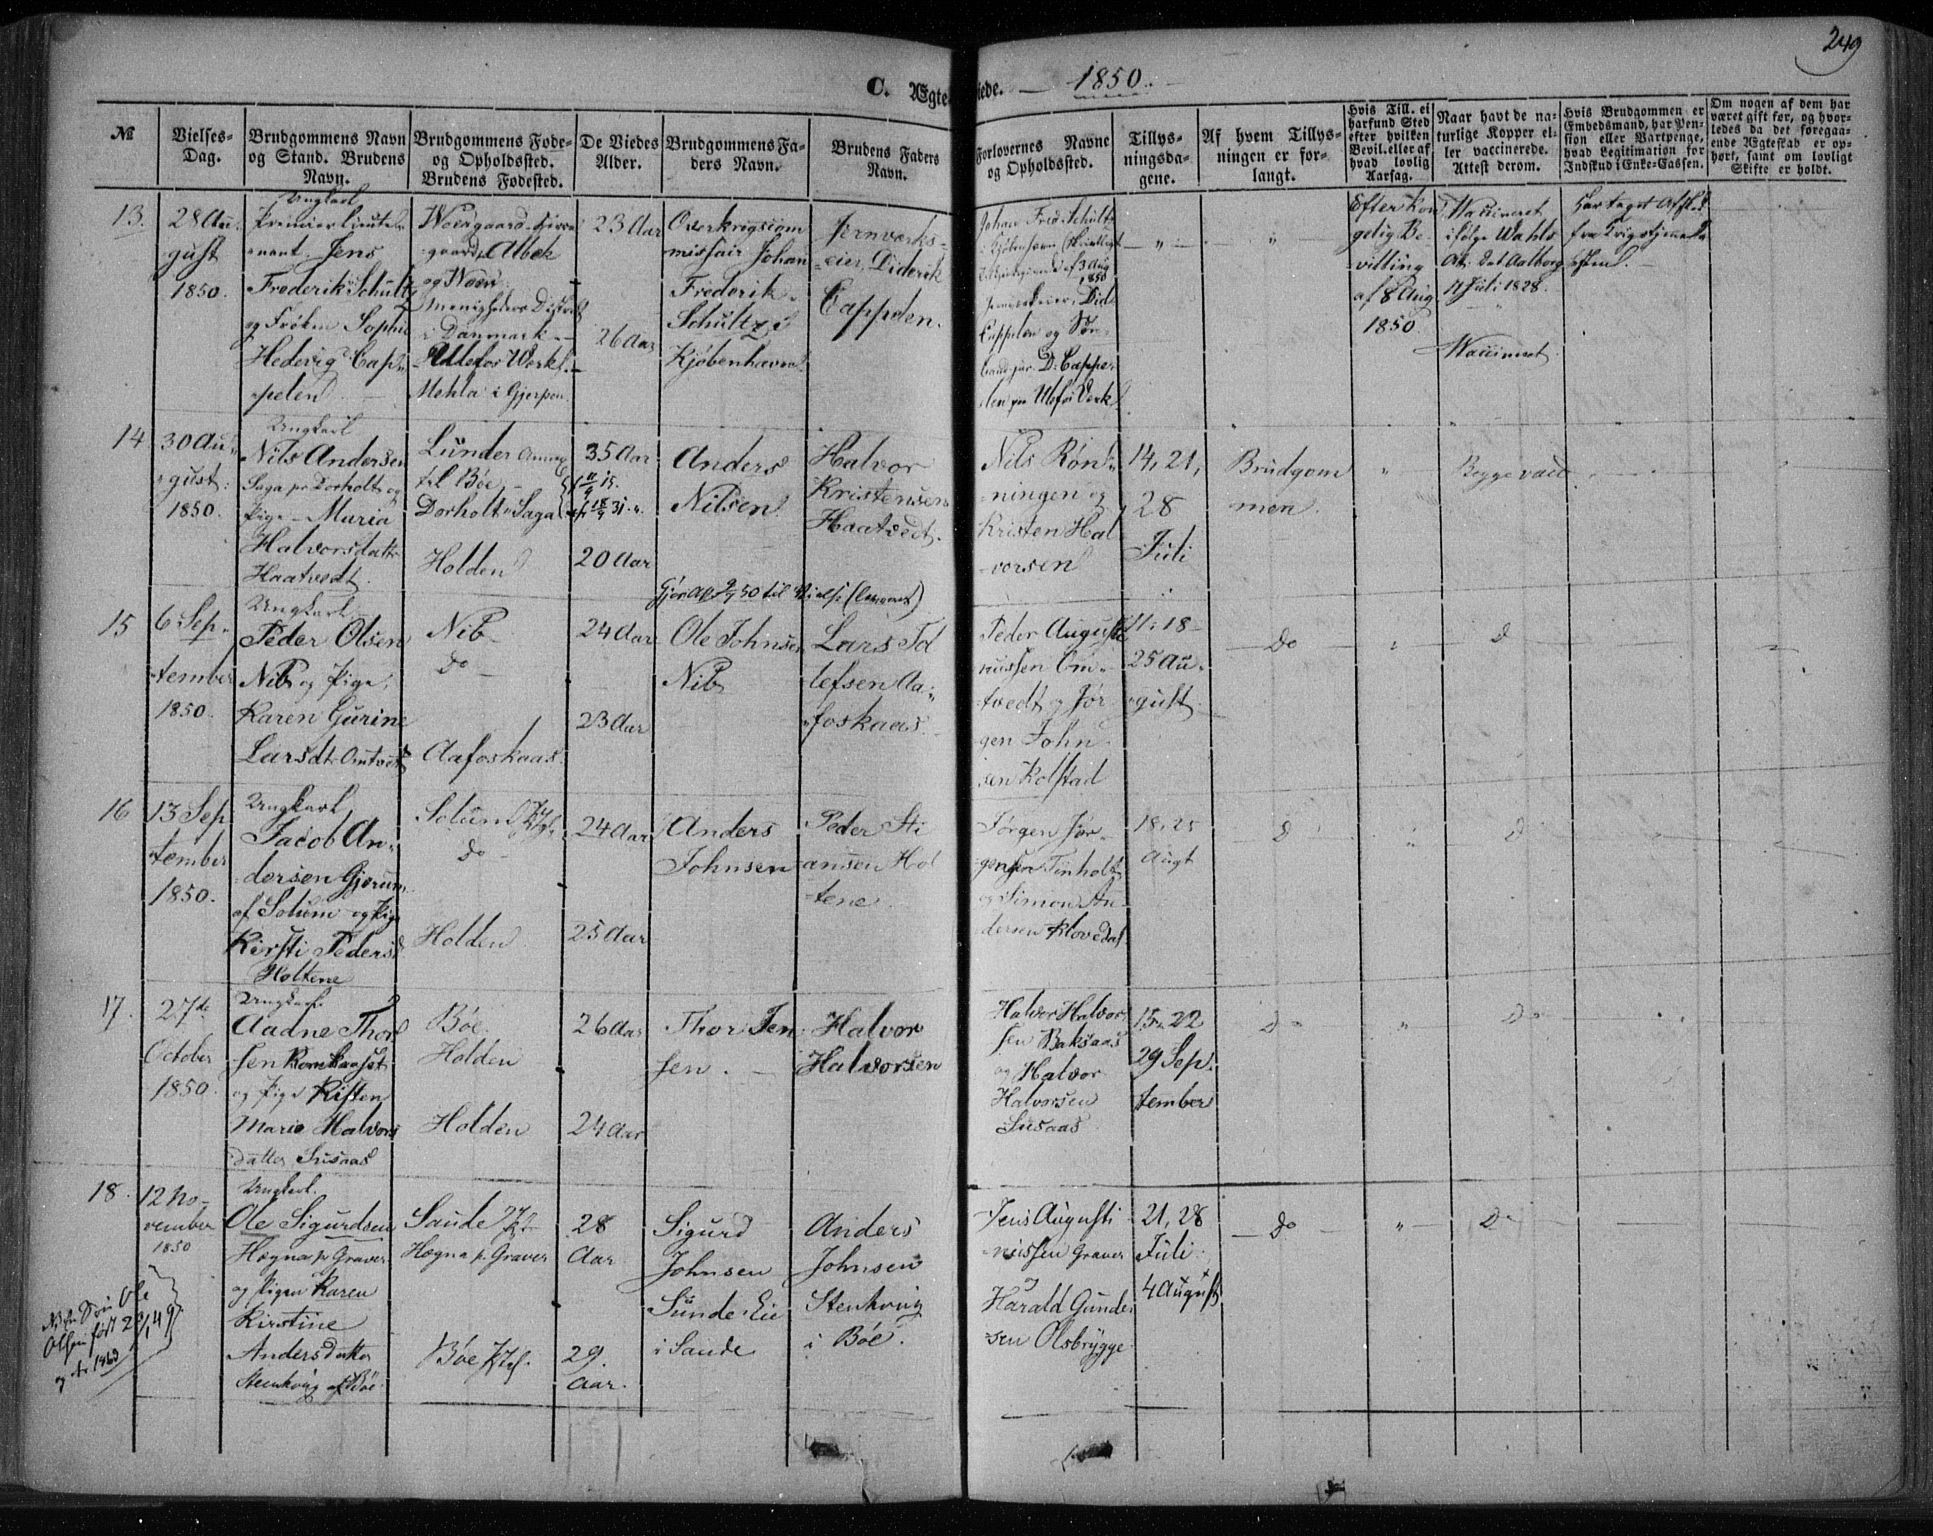 249
C. Ægteviede. 1850.
№
Vielses-
Dag.
Brudgommens Navn
og Stand. Brudens
Navn.
Brudgommens Føde-
og Opholdssted.
Brudens Fødested.
De Viedes
Alder.
Brudgommens Fa-
ders Navn.
Brudens Faders
Navn.
Forlovernes Navne
og Opholdssted.
Tillys-
ningsda-
gene.
Af hvem Tillys-
ningen er for-
langt.
Hvis Till. ei
har fund Sted
efter hvilken
Bevil. eller af
hvad lovlig
Aarsag.
Naar havt de na-
turlige Kopper el-
ler vaccinerede.
Attest derom.
Hvis Brudgommen er
Embedsmand, har Pen-
sion eller Vartpenge,
hvad Legitimation for
Indskud i Enke-Cassen.
Om nogen af dem har
været gift før, og hvor-
ledes da det foregaa-
ende Ægteskab er op-
hørt, samt om lovligt
Skifte er holdt.
13.
28 Au-
gust
1850.
Ungkarl
Premierlieute-
nant Jens
Frederik Schultz
og Frøken Sophie
Hedevig Cap-
pelen
Albek
og Woer
Menigheders Distrikt
i Danmark
Ulefos Værk
Mehla i Gjerpen
23 Aar
26 Aar
Overkrigscom
missair Johan
Frederik
Schultz i
Kjøbenhavn
Jernværks-
eier Diderik
Cappelen.
Johan Fred. Schultz
i Kjøbenhavn
af 3 Aug
1850
Jernværkseier Did
Cappelen og
D. Cappe-
len paa Ulefos Værk
"
"
Efter Kon
gelig Be-
villing
af 8 Aug
1850
Vaccineret
ifølge Wahls
At. dat Aalborg
17 Juli 1828.
Vaccineret.
Har taget Afsked
fra Krigstjenesten
14
30 Au-
gust
1850.
Ungkarl
Nils Andersen
Saga pr Dorholt og
Pige Maria
Halvorsdatter
Haatvedt.
Lunde Annex
til Bøe
Dorholt Saga
Holden
35 Aar
20 Aar
Anders
Nilsen
Halvor
Kristensen
Haatvedt.
Nils Røn-
ningen og
Kristen Hal
vorsen
14, 21,
28
Juli
Brudgom
men.
"
Begge vacc.
15
6 Sep-
tember
1850.
Ungkarl
Peder Olsen
Nib og Pige
Karen Gurine
Larsdt. Omtvedt
Nib
Do
Aafoskaas.
24 Aar
23 Aar
Ole Johnsen
Nib
Lars To
lefsen Aa-
foskaas
Peder Augusti
nussen Om-
tvedt og Jør
gen John
sen Kolstad
11, 18
25 Au-
gust
Do
"
D
16
13 Sep
tember
1850.
Ungkarl
Jacob An-
dersen Gjerum
af Solum og Pige
Kirsti Pedersd
Holtene
Solum
Do
Holden
24 Aar
25 Aar
Anders
Johnsen
Peder Sti
ansen Hol
tene
Jørgen Jør-
gensen Tinholt
og Simon An-
dersen Klovedal
18, 25
Augt
D
"
D
17.
27de
October
1850.
Ungkarl
Aadne Thor
sen Romkaaset
og Pige Kisten
Marie Halvors
datter Susaas
Bøe
Holden
Holden
26 Aar
24 Aar
Thor Jen
sen.
Halvor
Halvorsen
Halvor Halvor
sen Baksaas
og Halvor
Halvorsen
Susaas
15, 22
29 Sep.
tember
Do
"
Do
18.
12 No-
vember
1850
Ungkarl.
Ole Sigurdsen
Høgna pr Graver
og Pigen Karen
Kirstine
Andersdatter
Stenkvig af Bøe
Saude
Høgna p. Graver
Bøe
28
Aar
29.
Aar.
Sigurd
Johnsen
Sunde Eie
i Saude
Anders
Johnsen
Stenkvig
i Bøe.
Jens Augusti
nussen Graver
og
Harald Gunder
sen Olsbrygge
21, 28
Juli
4 August
Do
"
Do